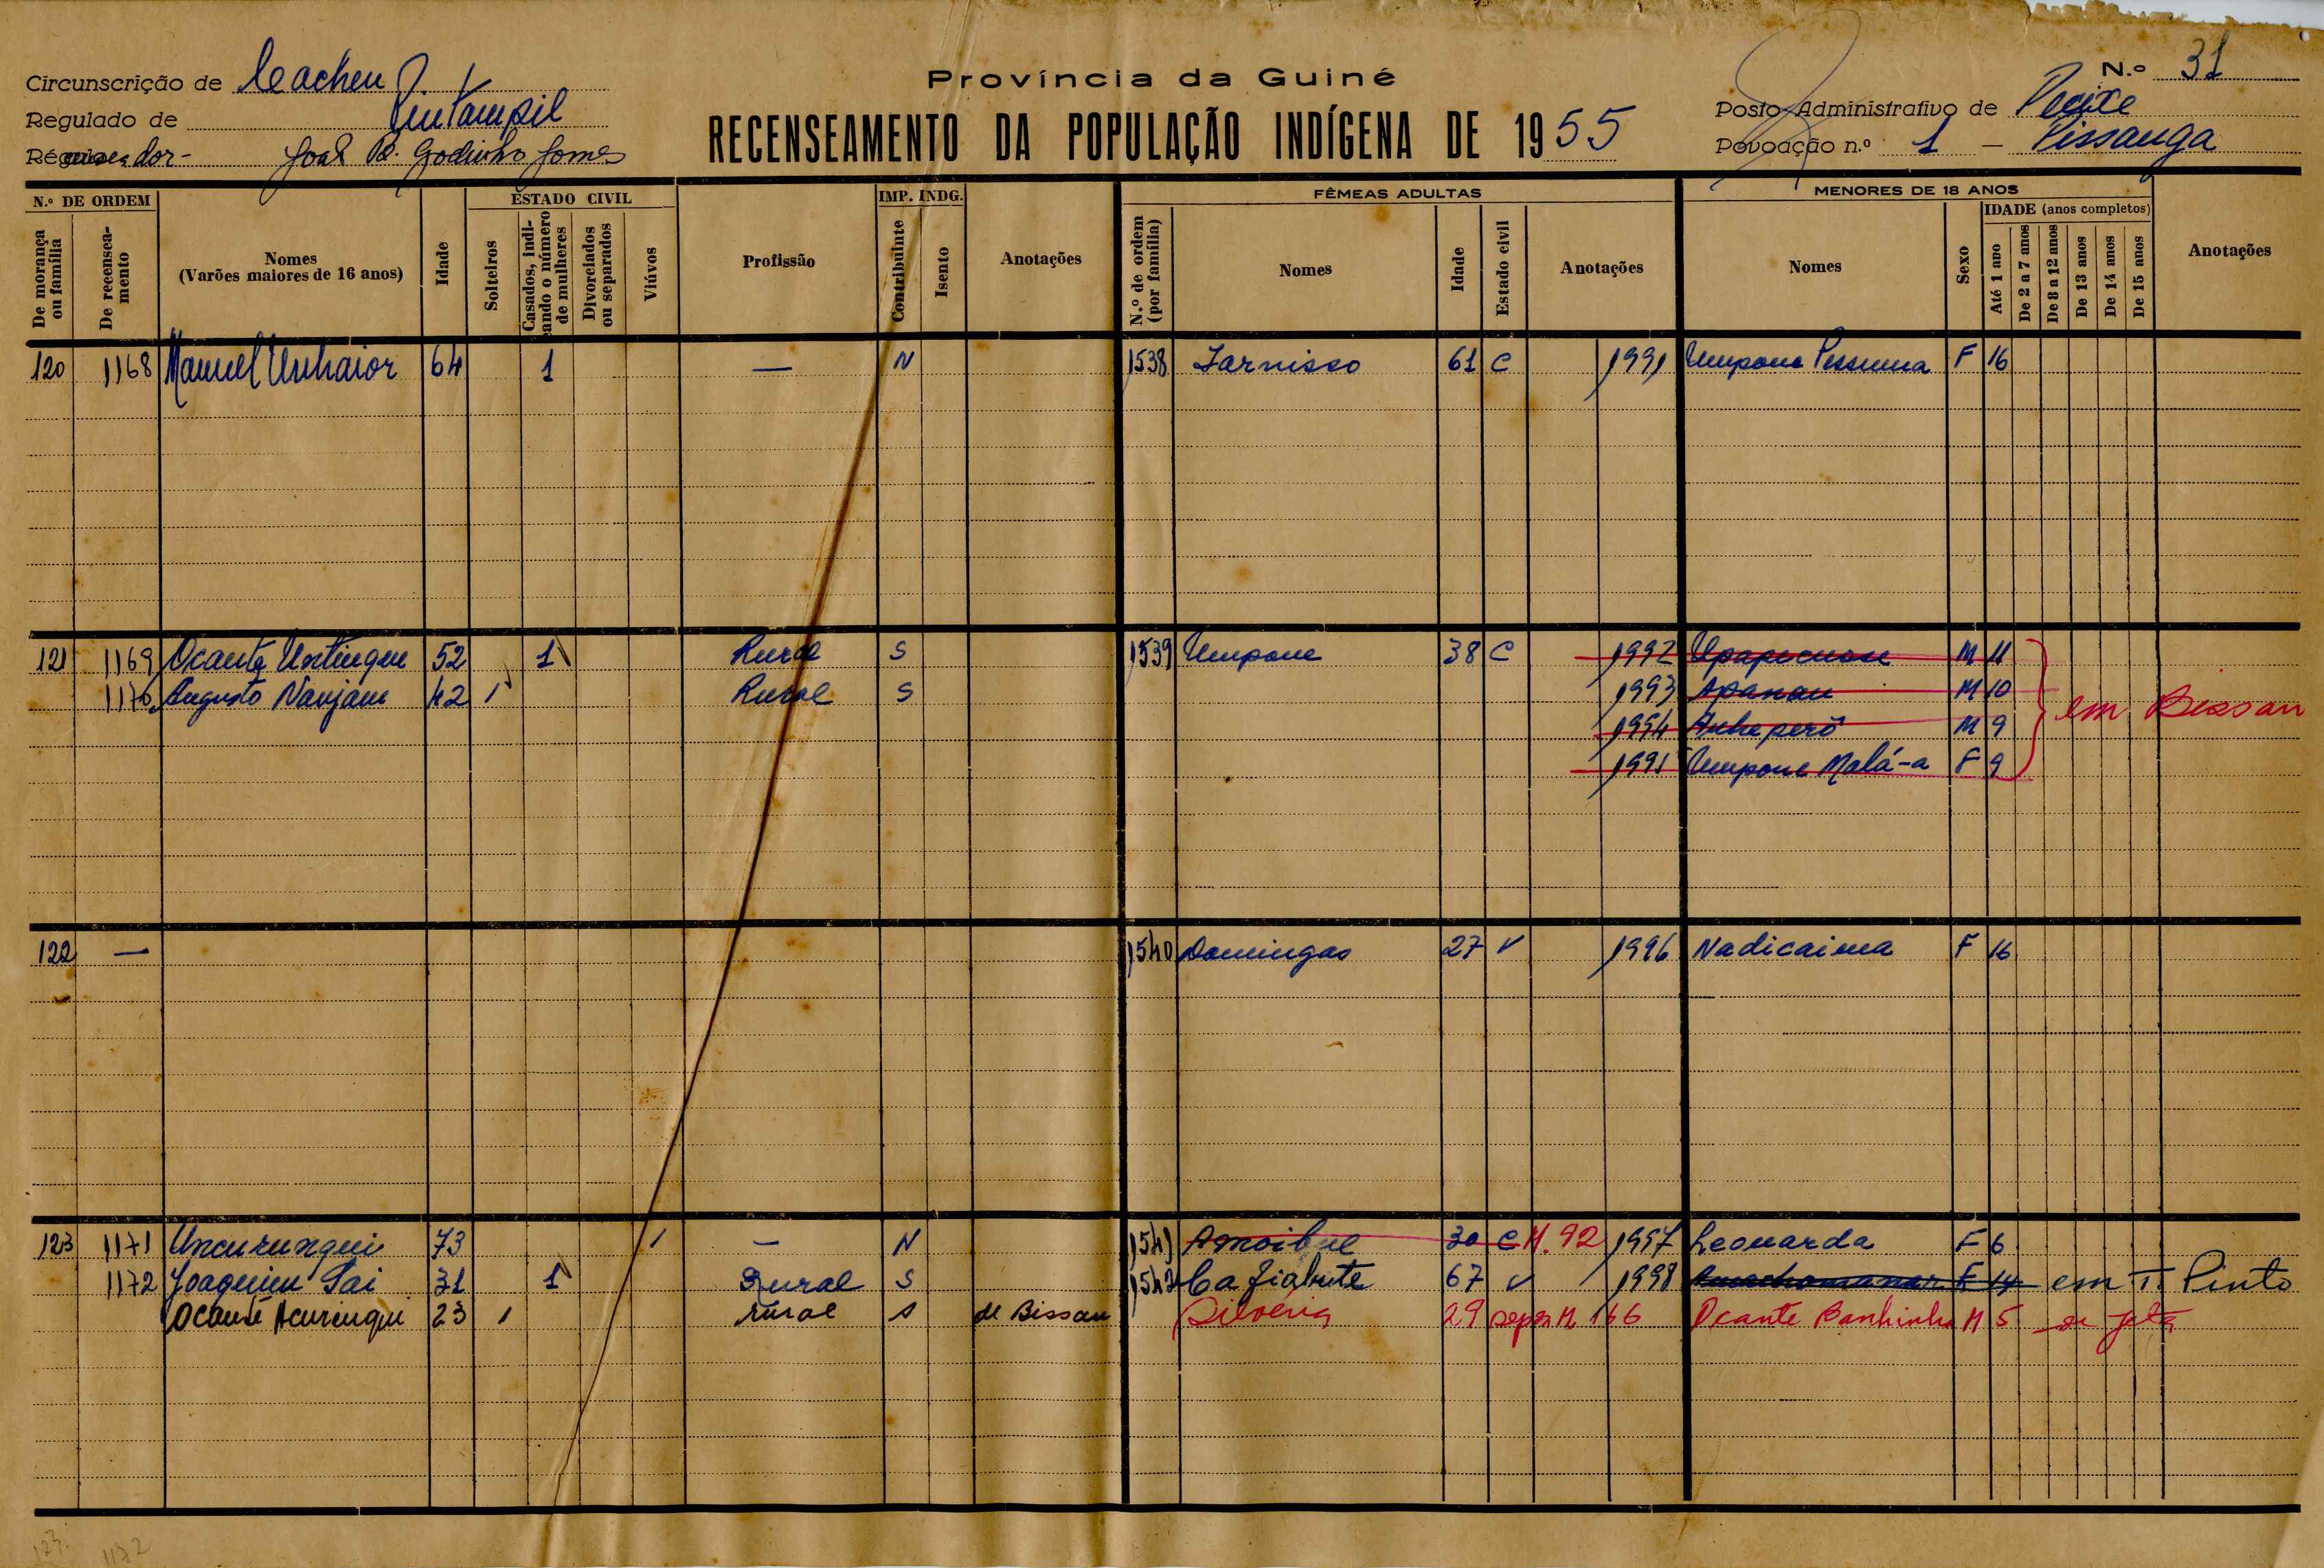 Província da Guiné
RECENSEAMENTO DA POPULAÇÃO INDÍGENA DE 1955
N.º 31
Circunscrição de Cacheu
Regulado de
Régulo
Posto Administrativo de Pecixe
Povoação n.º 1 – Pissanga
N.º DE ORDEM
De morança ou família
De recenseamento
Nomes
(Varões maiores de 16 anos)
Idade
ESTADO CIVIL
Solteiros
Casados, indicando o número de mulheres
Divorciados ou separados
Viúvos
Profissão
IMP. INDG.
Contribuinte
Isento
Anotações
FÊMEAS ADULTAS
N.º de ordem (por família)
Nomes
Idade
Estado civil
Anotações
MENORES DE 18 ANOS
Nomes
Sexo
IDADE (anos completos)
Até 1 ano
De 2 a 7 anos
De 8 a 12 anos
De 13 anos
De 14 anos
De 15 anos
Anotações
120 1168 Manuel 64 1 — N 1538 Jarnisso 61 C 1991 Umpone F 16
121 1169 Ocante 52 1 Rural S 1539 Umpone 38 C 1992 M 11
1170 Augusto Nanjam 42 1 Rural S 1993 Apanau M 10 em Bissau
1994 M 9
1995 Umpone Malá-a F 9
122 — 1540 Domingas 27 V 1996 Nadicaima F 16
123 1171 Uncurunqui 73 1 — N 1541 30 C M. 92 1997 Leonarda F 6
1172 Joaquim Sai 31 1 Rural S 1542 67 V 1998 F 14 em T. Pinto
Ocante 23 1 rural S de Bissau Silvéria 29 M 166 Ocante Banhinha M 5
123. 1172